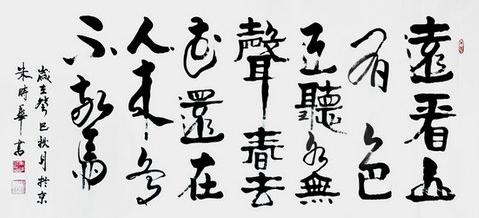 遠看山
有色
近聽水無
聲春去
花還在
人来鳥
不驚
歲在癸巳秋月於京
朱時華書